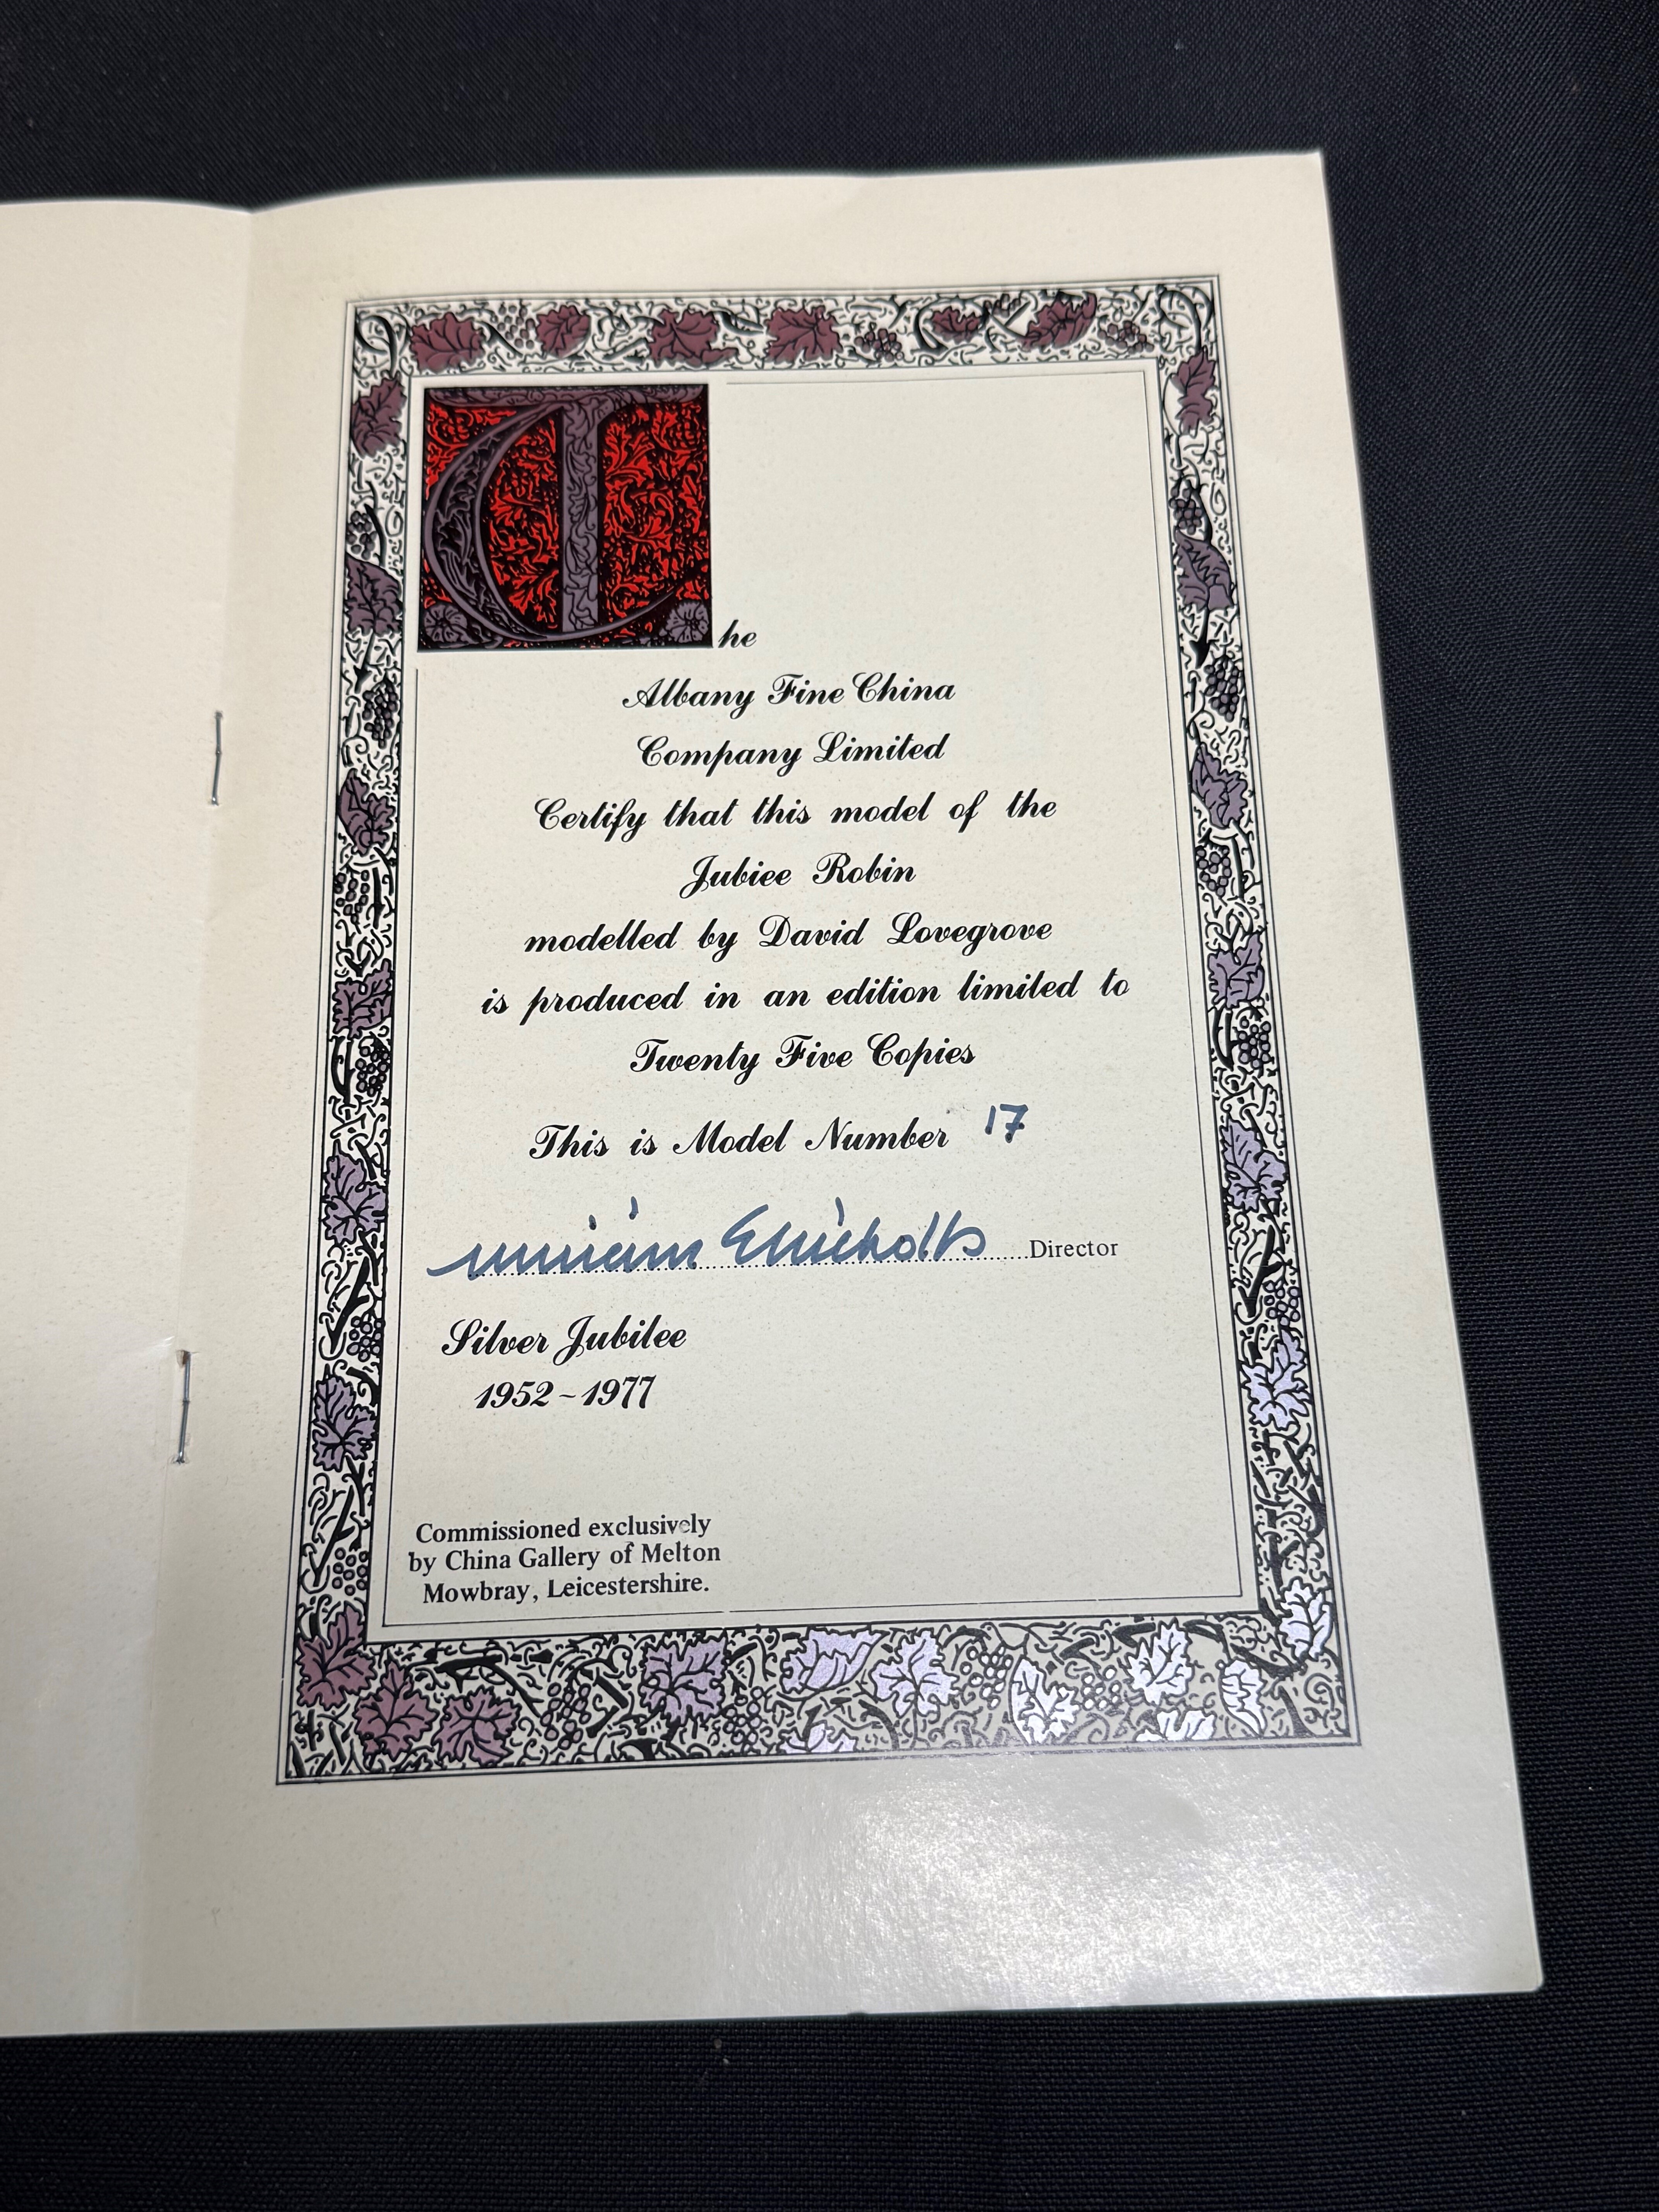 The
Albany Fine China
Company Limited
Certify that this model of the
Jubiee Robin
modelled by David Lovegrove
is produced in an edition limited to
Twenty Five Copies
This is Model Number 17
Director
Silver Jubilee
1952~1977
Commissioned exclusively
by China Gallery of Melton
Mowbray, Leicestershire.